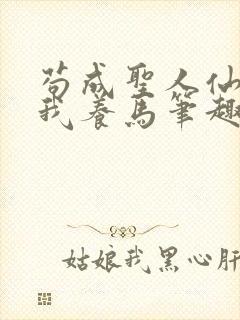 苟成聖人仙
我養馬筆趣
姑娘我黑心肝